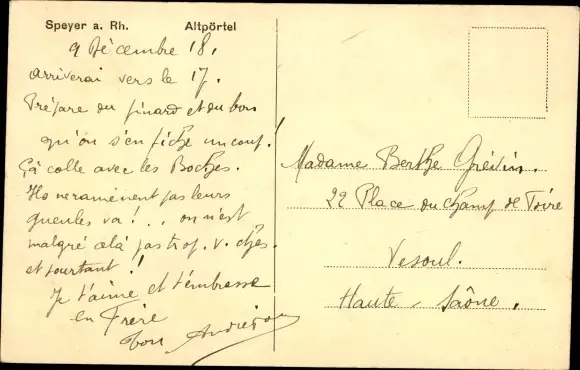 Speyer a. Rh. Altpörtel
9 Décembre 18.
arriverai vers le 17.
Prépare du pinard et du bon
qu'on s'en fiche un coup!
Çà colle avec les Boches.
Ils ne ramènent pas leurs
gueules va!.. on n'est
malgré celà pas trop v. ches
et pourtant!
Je t'aime et t'embrasse
en Frère
Ton
Madame Berthe Grévin.
22 Place du Champ de Foire
Vesoul.
Haute-Saône.